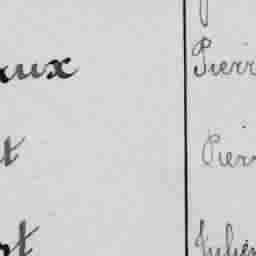 aux Pierr
t Pierr
rt Julien